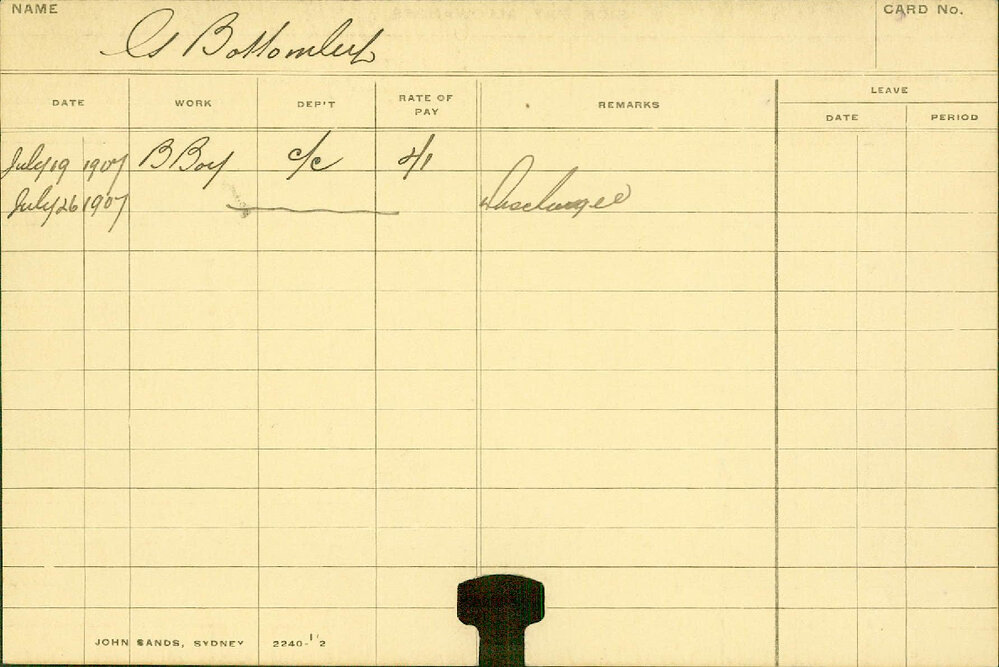 NAME
G Bottomley
CARD No.
DATE WORK DEP'T RATE OF PAY REMARKS LEAVE
DATE PERIOD
July 19 1907 B Boy c/c 4/1
July 26 1907 Discharged
JOHN SANDS, SYDNEY 2240-1'2